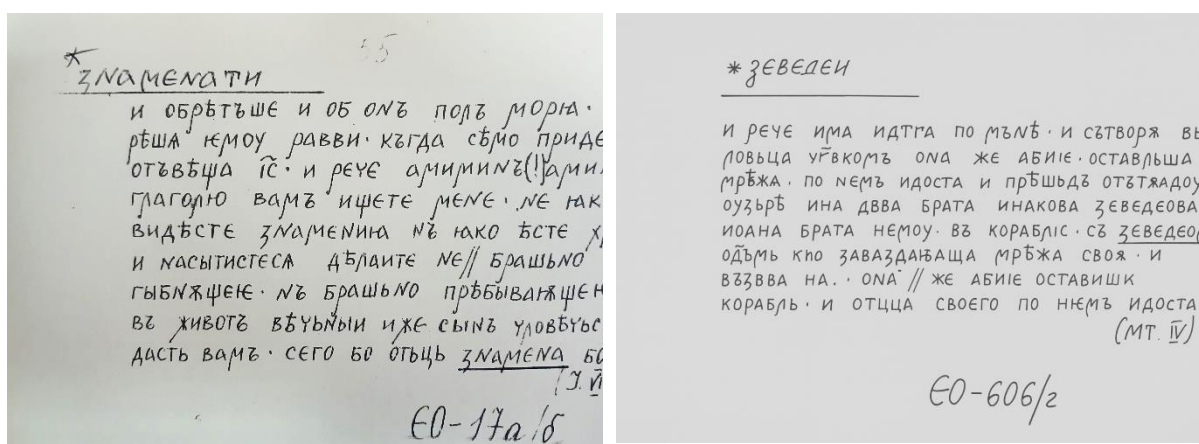 55
*ЗНАМЕНАТИ
И ОБРѢТЪШЕ И ОБ ОНЪ ПОЛЪ МОРꙖ ·
РѢШѦ ѤМОУ РАВВИ · КЪГДА СѢМО ПРИДЕ
ОТЪВѢЩА І҃С · И РЕЧЕ АМИМИНЪ(!)АМИ
ГЛАГОЛЮ ВАМЪ ИЩЕТЕ МЕНЕ · НЕ ꙖК
ВИДѢСТЕ ЗНАМЕНИꙖ НЪ ꙖКО ѢСТЕ Х
И НАСЫТИСТЕСѦ ДѢЛАИТЕ НЕ // БРАШЬНО
ГЫБЛѬЩЕЮ · НЪ БРАШЬНО ПРѢБЫВАѬЩЕ
ВЪ ЖИВОТЪ ВѢЧЬНЫИ ИЖЕ СЫНЪ ЧЛОВѢЧЬС
ДАСТЬ ВАМЪ · СЕГО БО ОТЬЦЬ ЗНАМЕНА БО
(J. VI
ЄО-17а/б
*ЗЕВЕДЕИ
И РЕЧЕ ИМА ИДТГА ПО МЪНѢ · И СЪТВОРѪ ВЫ
ЛОВЬЦА ЧР҃ВКОМЪ ОНА ЖЕ АБИІЕ · ОСТАВЛЬША
МРѢЖА · ПО НЕМЪ ИДОСТА И ПРѢШЬДЪ ОТЪТѪАДОУ
ОУЗЬРѢ ИНА ДВВА БРАТА ИНАКОВА ЗЕВЕДЕОВА
ИОАНА БРАТА НЕМОУ · ВЪ КОРАБЛІС · СЪ ЗЕВЕДЕО
ОД҃ЪМЬ КПО ЗАВАЗДАꙖЩА МРѢЖА СВОѪ · И
ВЪЗВВА НА. · ОНА // ЖЕ АБИІЕ ОСТАВИШК
КОРАБЛЬ · И ОТЦЦА СВОЕГО ПО НЮМЪ ИДОСТА
(МТ. IV)
ЄО-606/г